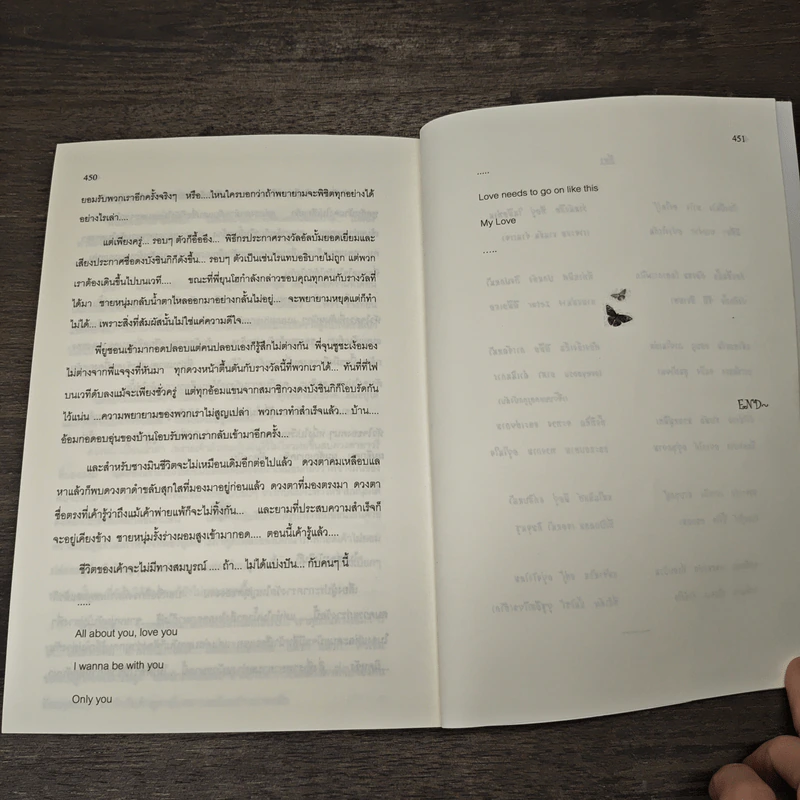 450
ยอมรับพวกเราอีกครั้งจริงๆ หรือ....ไหนใครบอกว่าถ้าพยายามจะพิชิตทุกอย่างได้
อย่างไรเล่า....
แต่เพียงครู่... รอบๆ ตัวก็อื้ออึง... พิธีกรประกาศรางวัลอัลบั้มยอดเยี่ยมและ
เสียงประกาศชื่อดงบังชินกิก็ดังขึ้น... รอบๆ ตัวเป็นเช่นไรแทบอธิบายไม่ถูก แต่พวก
เราต้องเดินขึ้นไปบนเวที.... ขณะที่พี่ยุนโฮกำลังกล่าวขอบคุณทุกคนกับรางวัลที่
ได้มา ชายหนุ่มกลับน้ำตาไหลออกมาอย่างกลั้นไม่อยู่... จะพยายามหยุดแต่ก็ทำ
ไม่ได้... เพราะสิ่งที่สัมผัสนั้นไม่ใช่แค่ความดีใจ....
พี่ยูชอนเข้ามากอดปลอบแต่คนปลอบเองก็รู้สึกไม่ต่างกัน พี่จุนซูชะเง้อมอง
ไม่ต่างจากพี่แจจุงที่หันมา ทุกดวงหน้าตื้นตันกับรางวัลนี้ที่พวกเราได้... ทันทีที่ไฟ
บนเวทีดับลงแม้จะเพียงชั่วครู่ แต่ทุกอ้อมแขนจากสมาชิกวงดงบังชินกิก็โอบรัดกัน
ไว้แน่น ...ความพยายามของพวกเราไม่สูญเปล่า พวกเราทำสำเร็จแล้ว... บ้าน....
อ้อมกอดอบอุ่นของบ้านโอบรับพวกเรากลับเข้ามาอีกครั้ง...
และสำหรับชางมินชีวิตจะไม่เหมือนเดิมอีกต่อไปแล้ว ดวงตาคมเหลือบแล
หาแล้วก็พบดวงตาดำขลับสุกใสที่มองมาอยู่ก่อนแล้ว ดวงตาที่มองตรงมา ดวงตา
ซื่อตรงที่เค้ารู้ว่าถึงแม้เค้าพ่ายแพ้ก็จะไม่ทิ้งกัน... และยามที่ประสบความสำเร็จก็
จะอยู่เคียงข้าง ชายหนุ่มรั้งร่างผอมสูงเข้ามากอด.... ตอนนี้เค้ารู้แล้ว....
ชีวิตของเค้าจะไม่มีทางสมบูรณ์ .... ถ้า... ไม่ได้แบ่งปัน... กับคนๆ นี้
.....
All about you, love you
I wanna be with you
Only you
451
.....
Love needs to go on like this
My Love
.....
END~